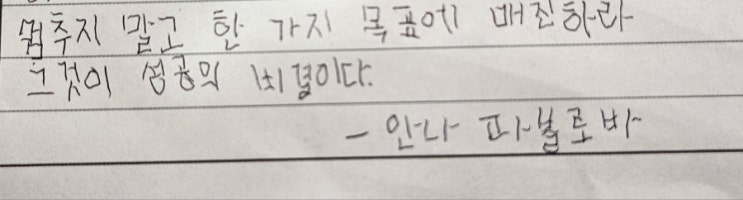 멈추지 말고 한 가지 목표에 매진하라
그것이 성공의 비결이다.
- 안나 파블로바